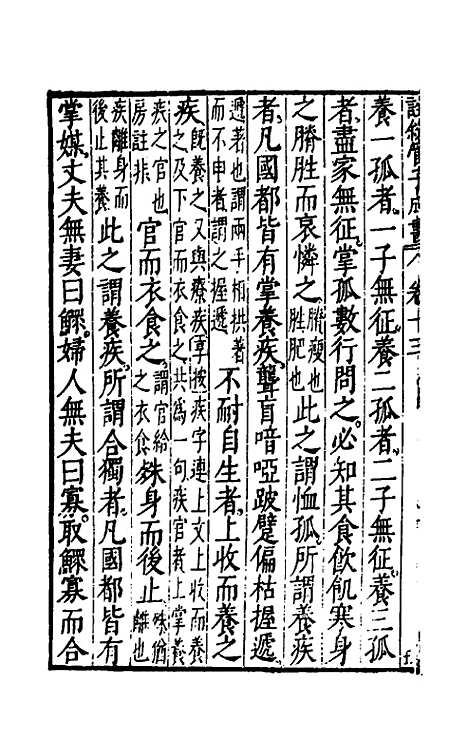 養一孤者一子無征養二孤者二子無征養三孤
者盡家無征掌孤數行問之必知其食飲飢寒身
之膌胜而哀憐之膌瘦也胜肥也此之謂恤孤所謂養疾
者凡國都皆有掌養疾聾盲喑啞跛躄偏枯握遞
遞著也謂兩手相拱著而不申者謂之握遞不耐自生者上收而養之
疾既養之又與療疾享按疾字連上文上收而養之及下官而衣食之共爲一句疾官者上掌養疾之官也房註非官而衣食之謂官給之衣食殊身而後止殊猶離也
疾離身而後止其養此之謂養疾所謂合獨者凡國都皆有
掌媒丈夫無妻曰鰥婦人無夫曰寡取鰥寡而合